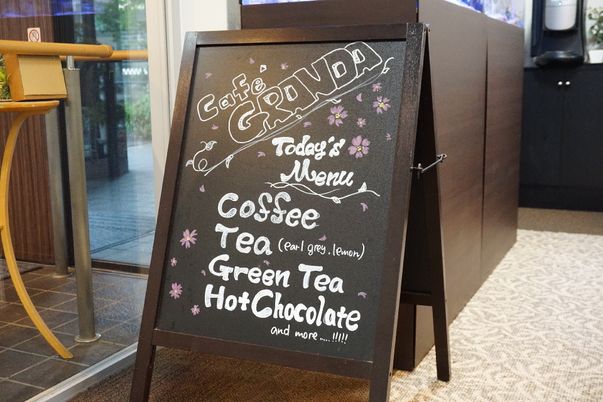 Café GRANDA
Today's
Menu
Coffee
Tea (earl grey. lemon)
Green Tea
Hot Chocolate
and more.....!!!!!